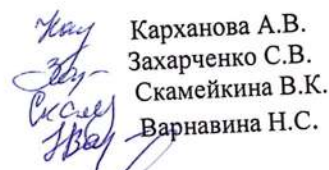 Карханова А.В.
Захарченко С.В.
Скамейкина В.К.
Варнавина Н.С.